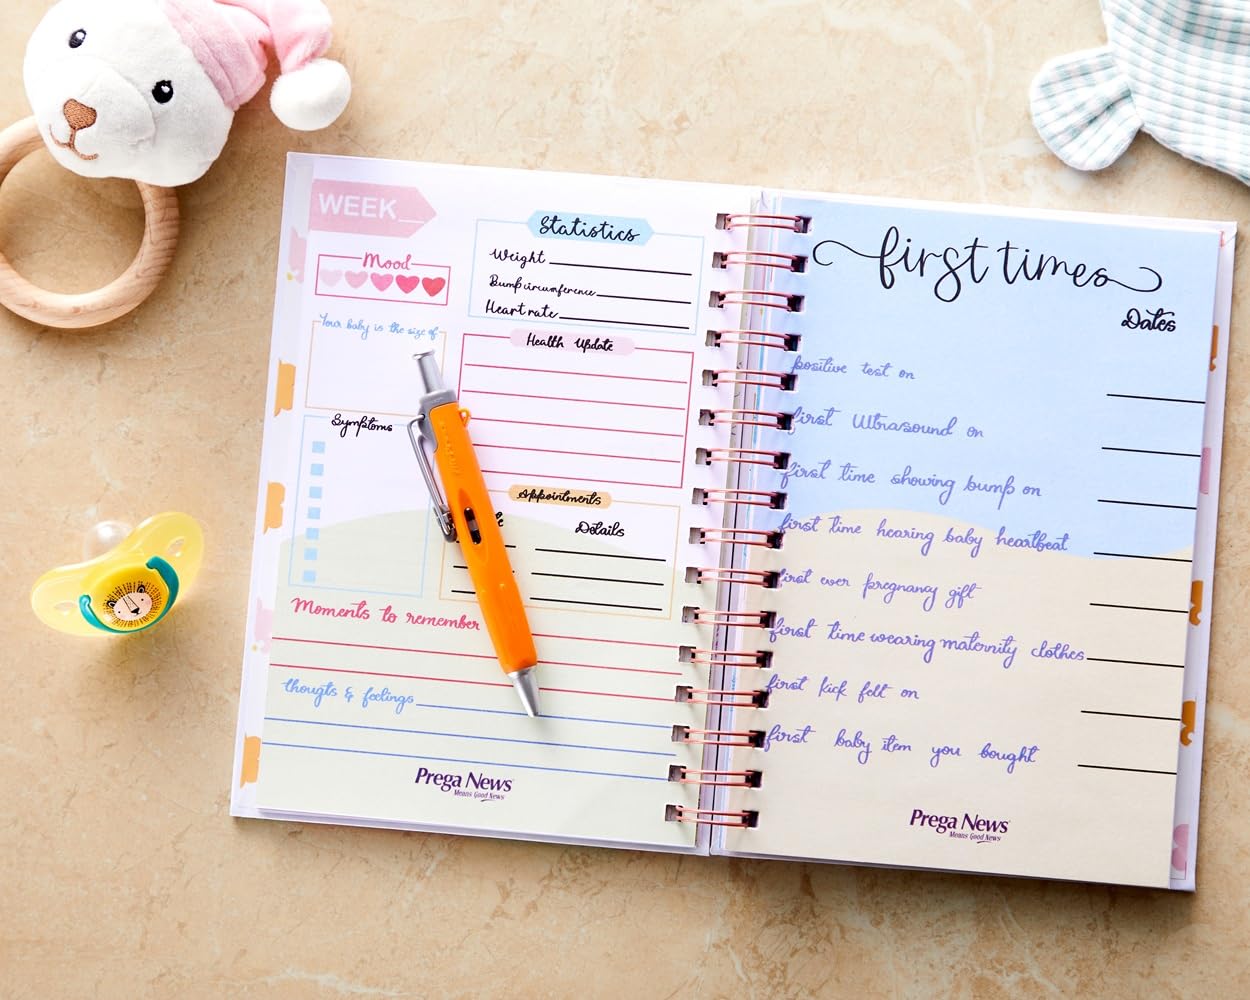 WEEK__
Mood
Your baby is the size of
Symptoms
Statistics
Weight
Bump cirumference
Heart rate
Health Update
Appointments
Details
Moments to remember
thougts & feelings
Prega News
Means Good News
first times
Dates
positive test on
first Ultrasound on
first time showing bump on
first time hearing baby heartbeat
first ever pregnancy gift
first time wearing maternity clothes
first kick felt on
first baby item you bought
Prega News
Means Good News